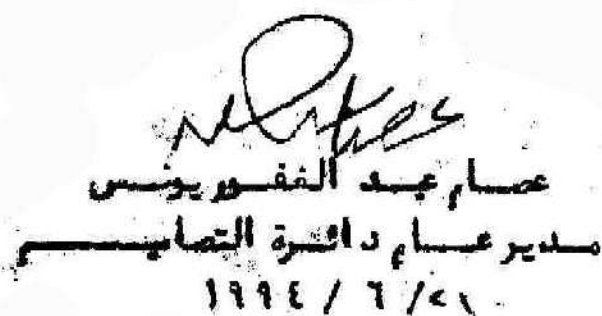 عصام عبد الغفور يونس
مدير عام دائرة التصاميم
٢١ / ٦ / ١٩٩٤